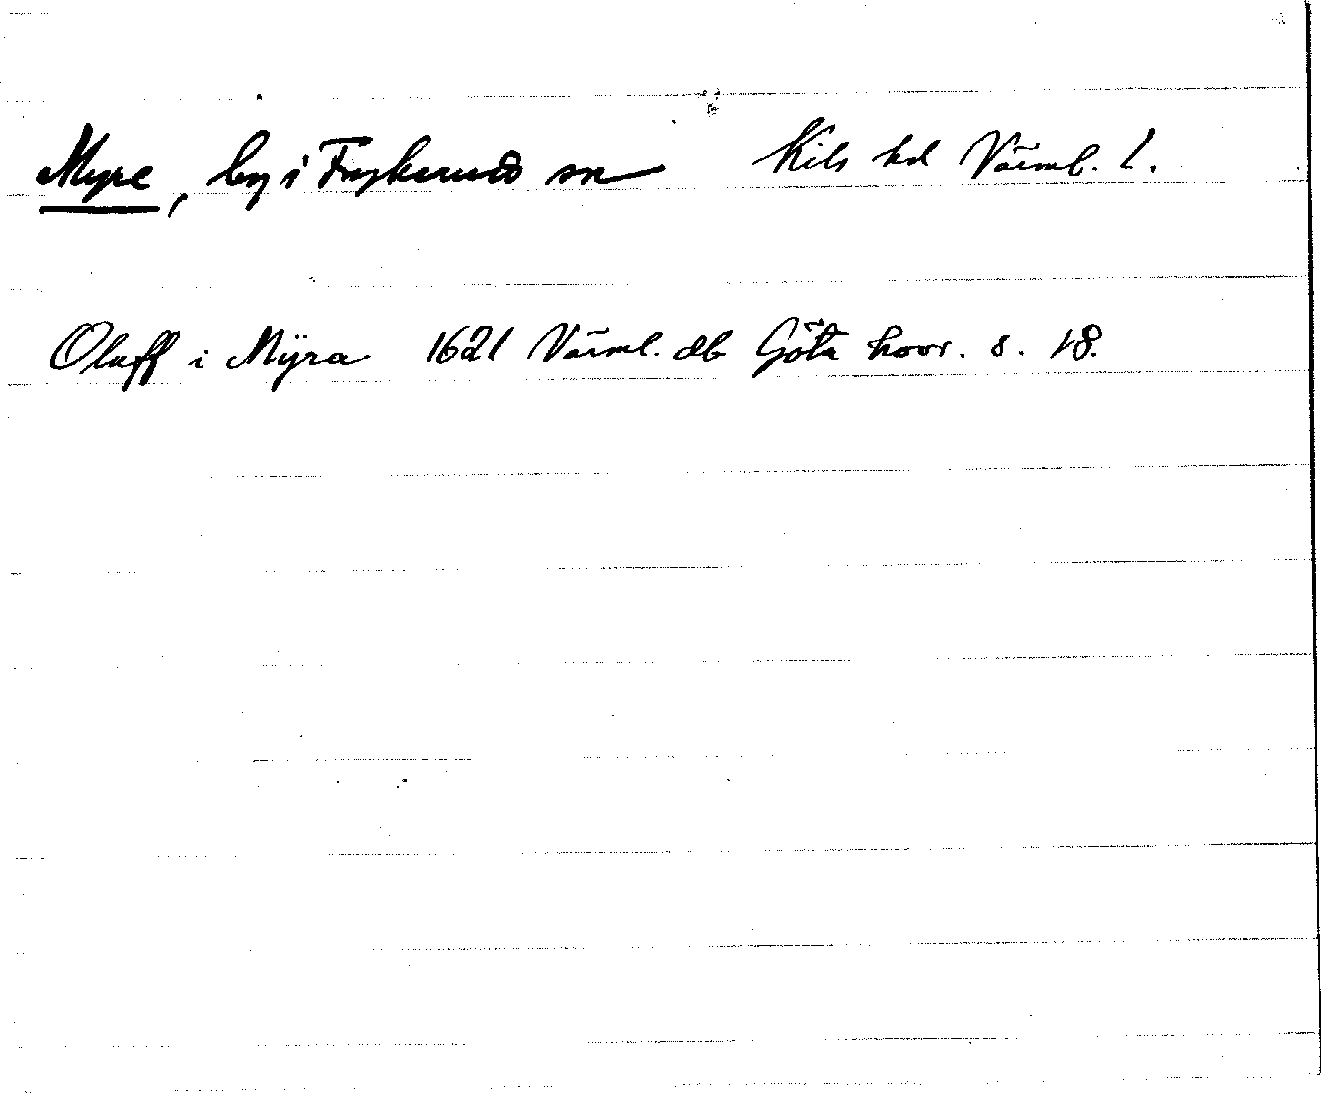 Myre, by i Frykerud sn Kils hd Värml. l.
Oluff i Mÿra 1621 Värml. db Göta hovr. s. 18.